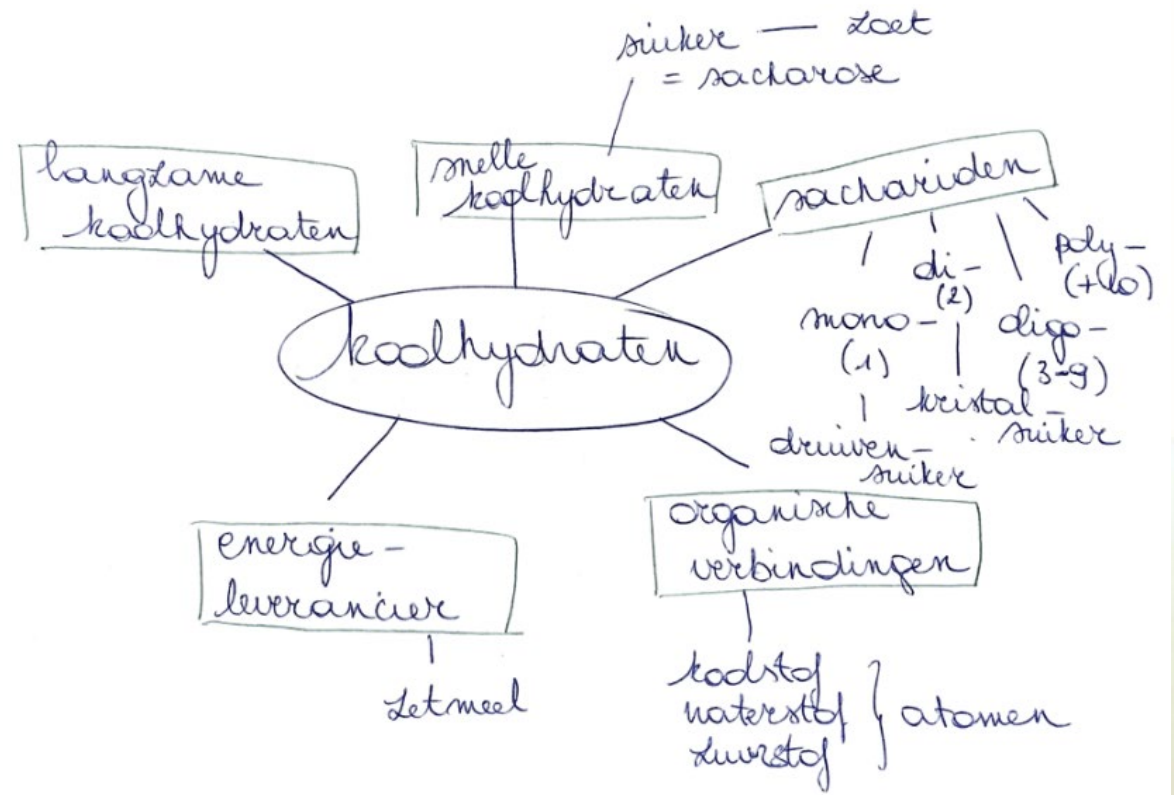 suiker — zoet
= sacharose
langzame
koolhydraten
snelle
koolhydraten
sachariden
mono-
(1)
druiven-
suiker
di-
(2)
kristal-
suiker
oligo-
(3-9)
poly-
(+10)
koolhydraten
energie-
leverancier
zetmeel
organische
verbindingen
koolstof
waterstof
zuurstof
} atomen